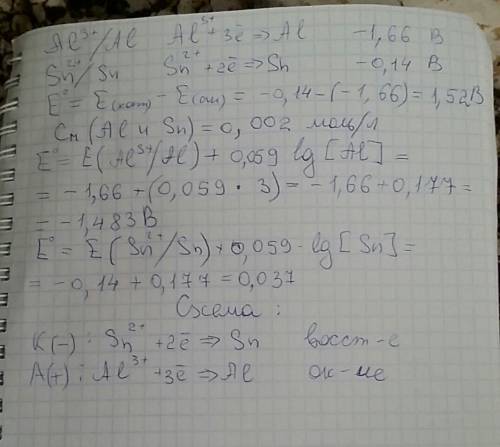 Al³⁺/Al Al³⁺+3ē⇒Al -1,66 В
Sn²⁺/Sn Sn²⁺+2ē⇒Sn -0,14 В
E° = E(кат) - E(ан) = -0,14-(-1,66)=1,52В
См (Al и Sn) = 0,002 моль/л
E° = E(Al³⁺/Al) + 0,059 lg [Al] =
= -1,66 + (0,059 · 3) = -1,66+0,177 =
= -1,483 В
E° = E (Sn²⁺/Sn) + 0,059 · lg [Sn] =
= -0,14 + 0,177 = 0,037
Схема :
К(-) : Sn²⁺ +2ē ⇒ Sn восст-е
А(+) : Al³⁺ +3ē ⇒ Al ок-ие